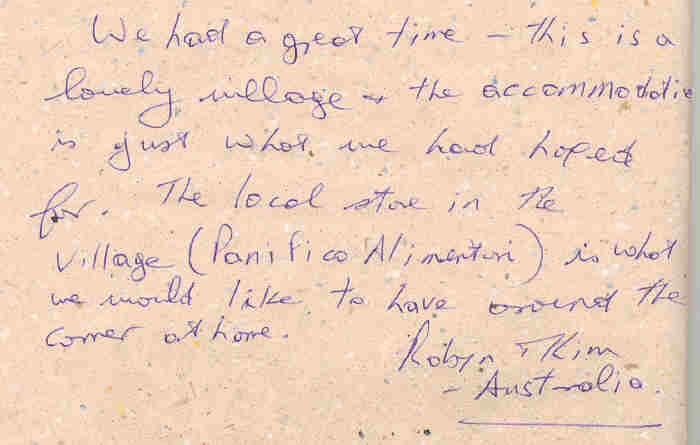 We had a great time – this is a
lovely village + the accommodatio
is just what we had hoped
for. The local store in the
village (Panifico Alimentari) is what
we would like to have around the
corner at home.
Robyn + Kim
- Australia.